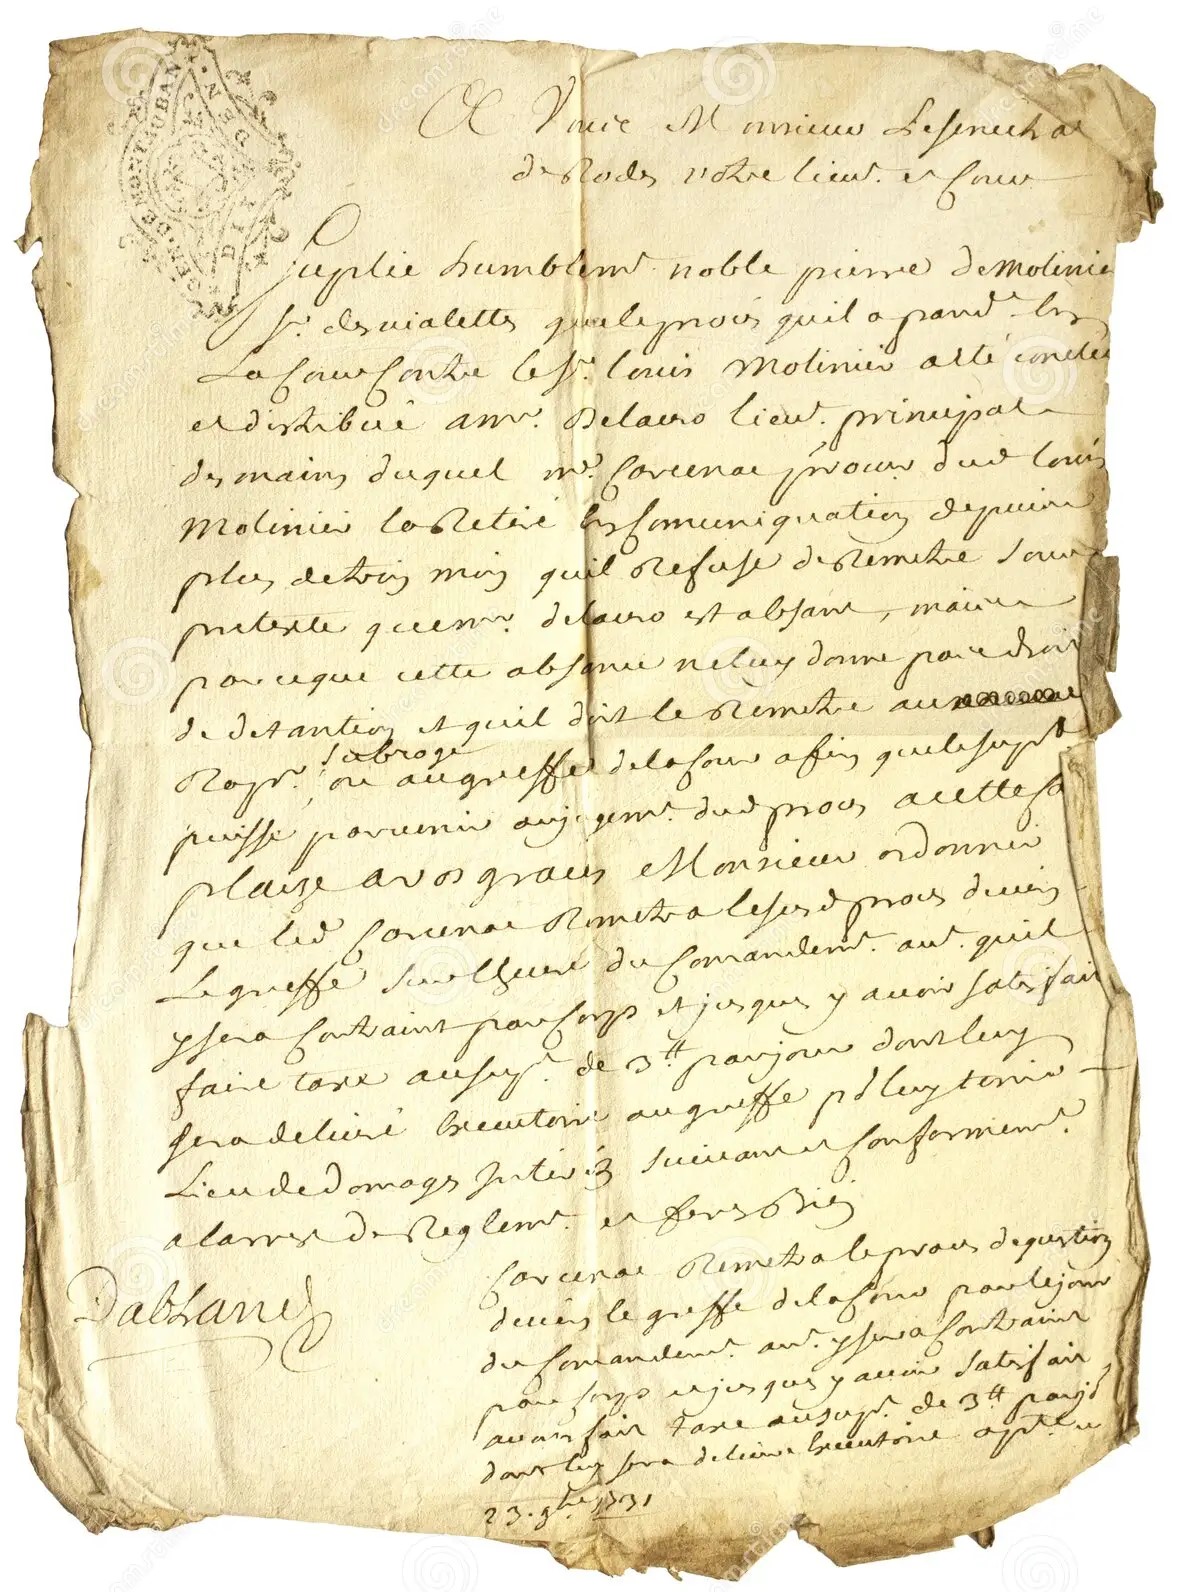 GEN. DE MONTAUBAN
A Vous Monsieur Le senechal
de Rodes votre lieut. et Cour
Suplie humblemt. noble pierre de Molinier
sr. des vialettes que le proces qu'il a pand.t
La Cour Contre le Sr. louis Molinier a été conclu
et distribué a mr. Delauro lieut. principal
des mains duquel me. Carcenac procur. dud. louis
Molinier la Retiré en Comuniquation depuis
plus de trois mois quil Refuse de Remetre sous
pretexte que mr. delauro est absant, mais
parceque cette absance ne luy donne pas de droit
de detantion et quil doit le Remetre au
subrogé
Rapr. ou au greffe de la Cour afin que le supt.
puisse parvenir au jugemt. dud. proces a cette fin
plaize a vos graces Monsieur ordonner
que led. Carcenac Remetra le susd. proces devers
Le greffe sur l'heure du Comandemt. aut. quil
y sera Contraint par Corps et jusques y avoir satisfait
faire taxe au supt. de 3 tt par jour dont luy
sera delivré executoire au greffe pr luy tenir
Lieu de domages Interés suivant et Conformemt.
a larrest de Reglemt. et feres Bien
Dabhane
Carcenac Remetra le proces de question
devers le greffe de la Cour par le jour
du Comandemt. aut. y sera Contraint
par Corps et jusques y avoir satisfait
avons fait taxe au supt. de 3 tt par jr
dont luy sera delivré executoire apt. ce
23. 9bre 1731